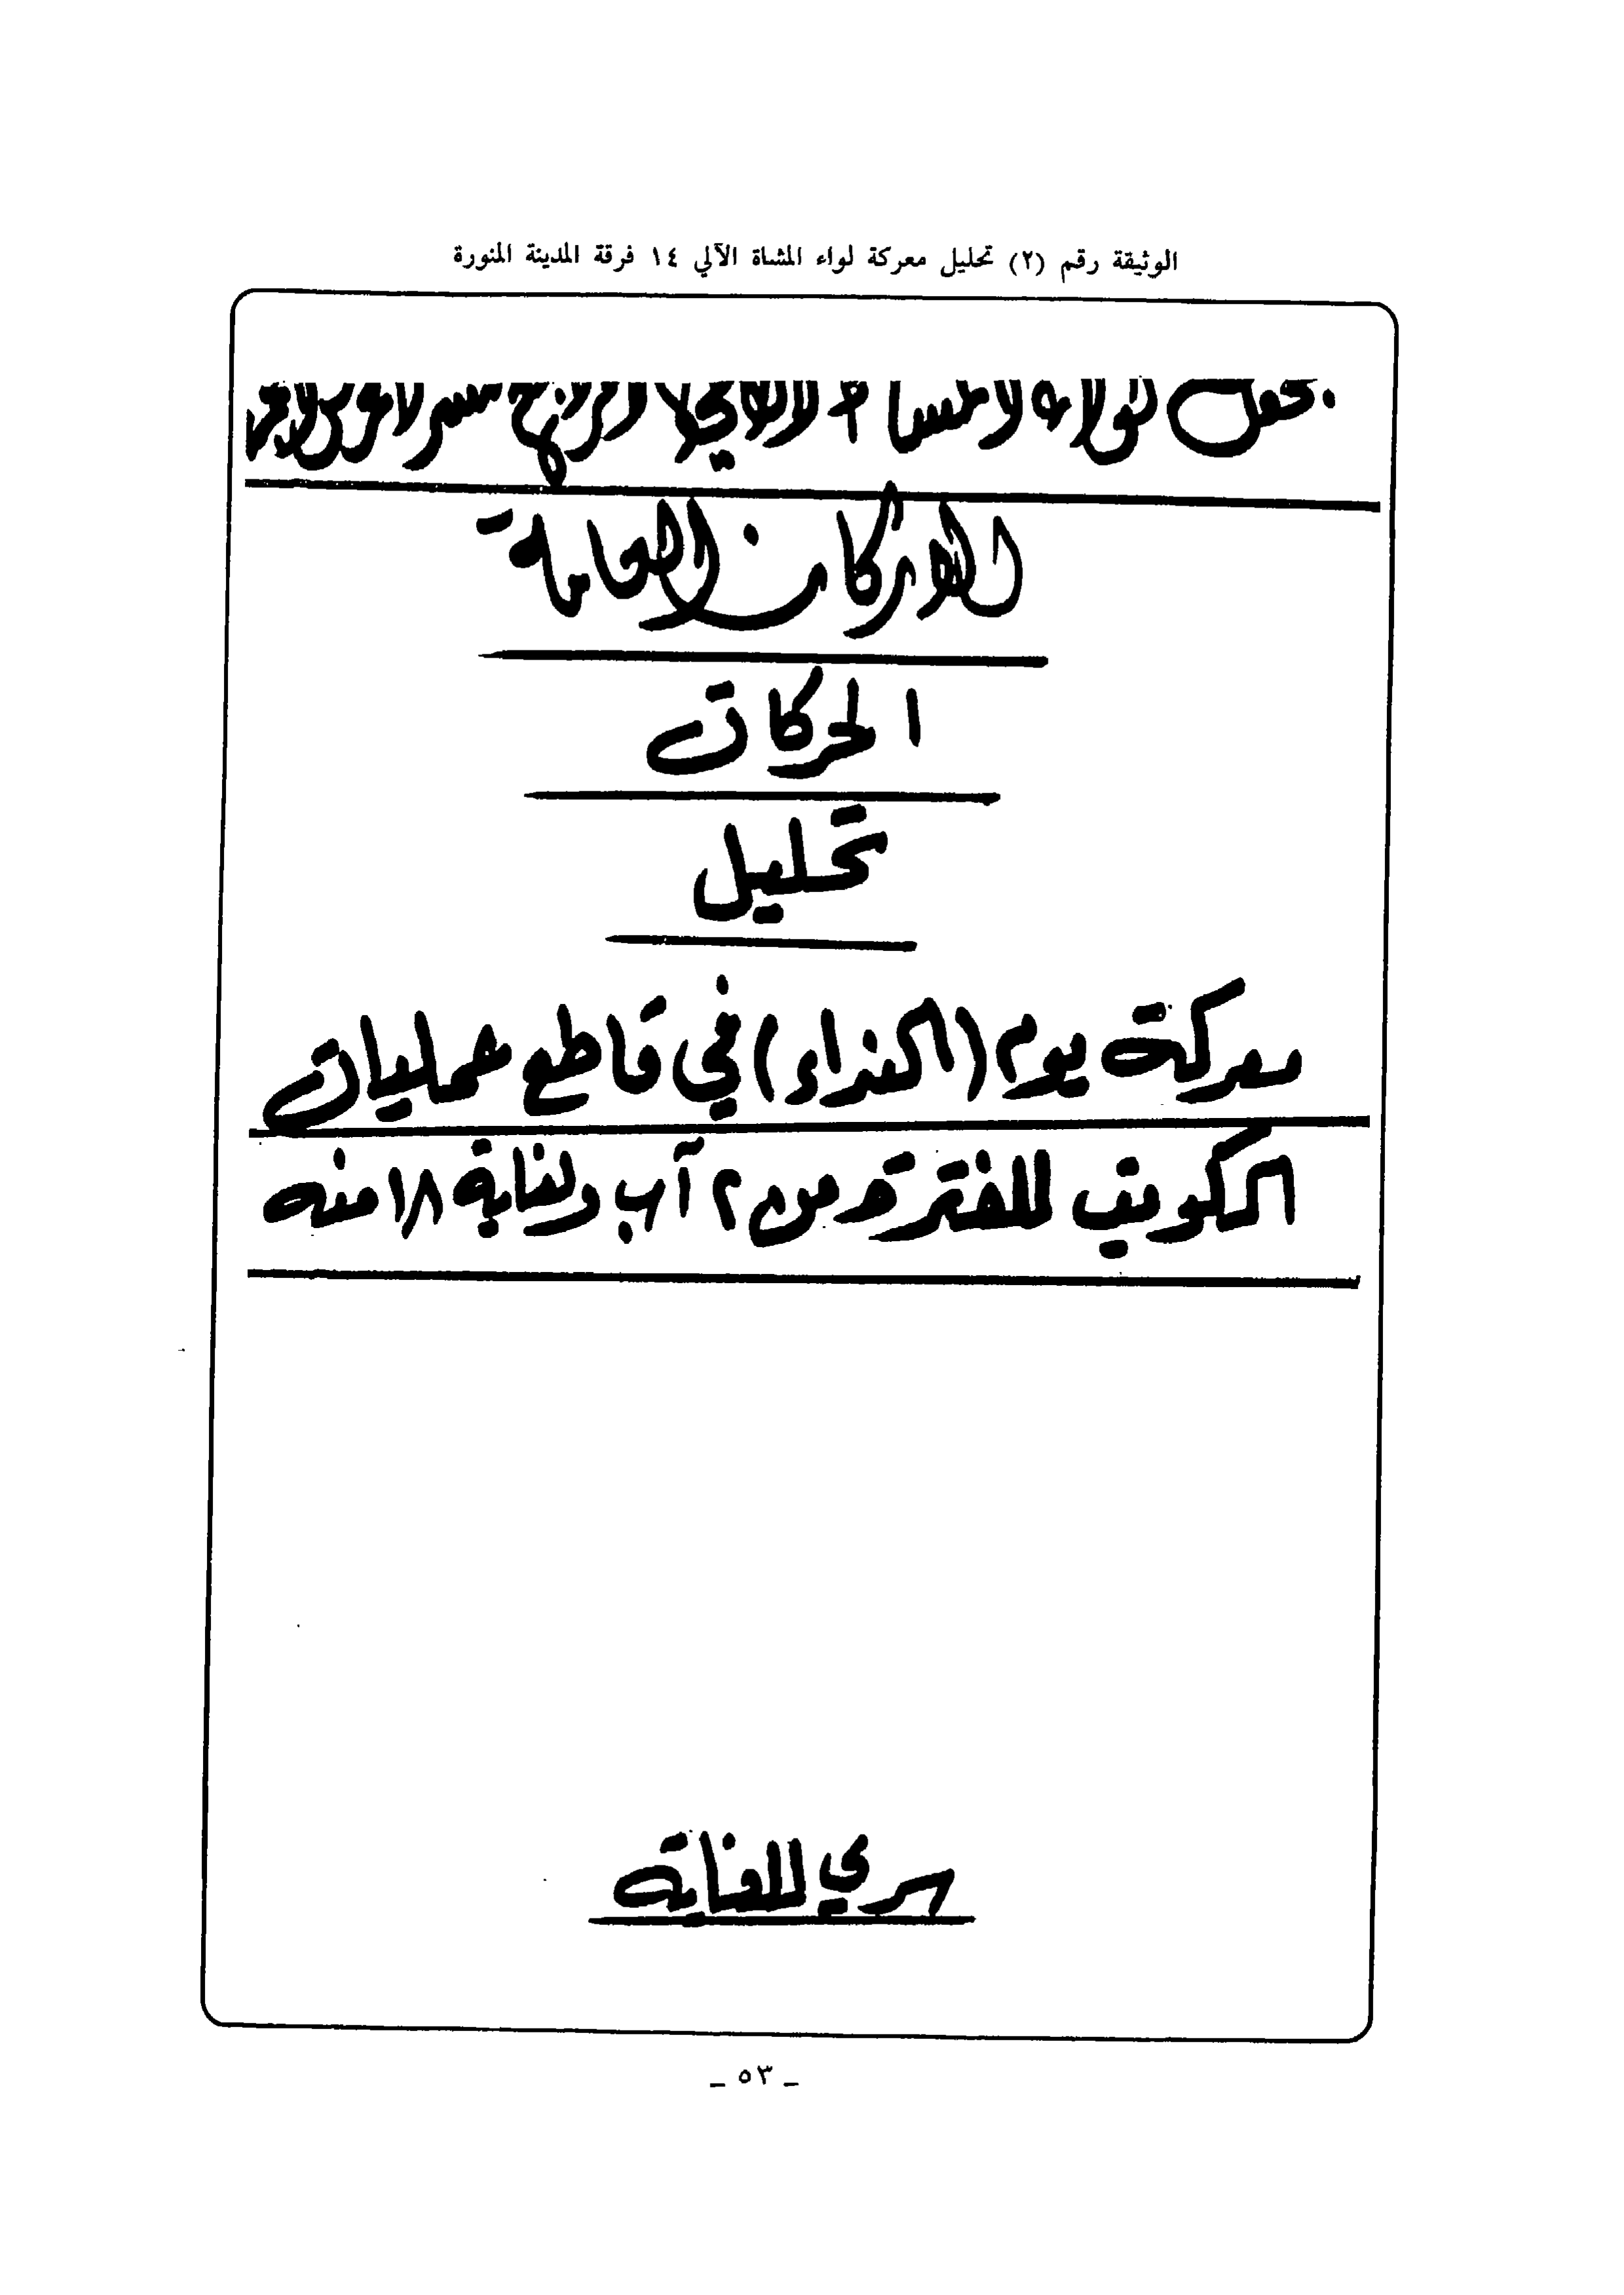 الوثيقة رقم (٢) تحليل معركة لواء المشاة الآلي ١٤ فرقة المدينة المنورة
لواء المشاة الآلي الرابع عشر
الاركان العامة
الحركات
تحليل
معركة يوم (النداء) في قاطع عمليات
الكويت للفترة من ٢ آب ولغاية ١٨ منه
سري للغاية
ـ ٥٣ ـ